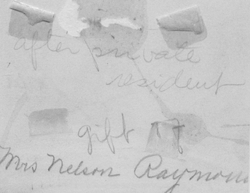 after private
resident
gift 17
Mrs Nelson Raymon